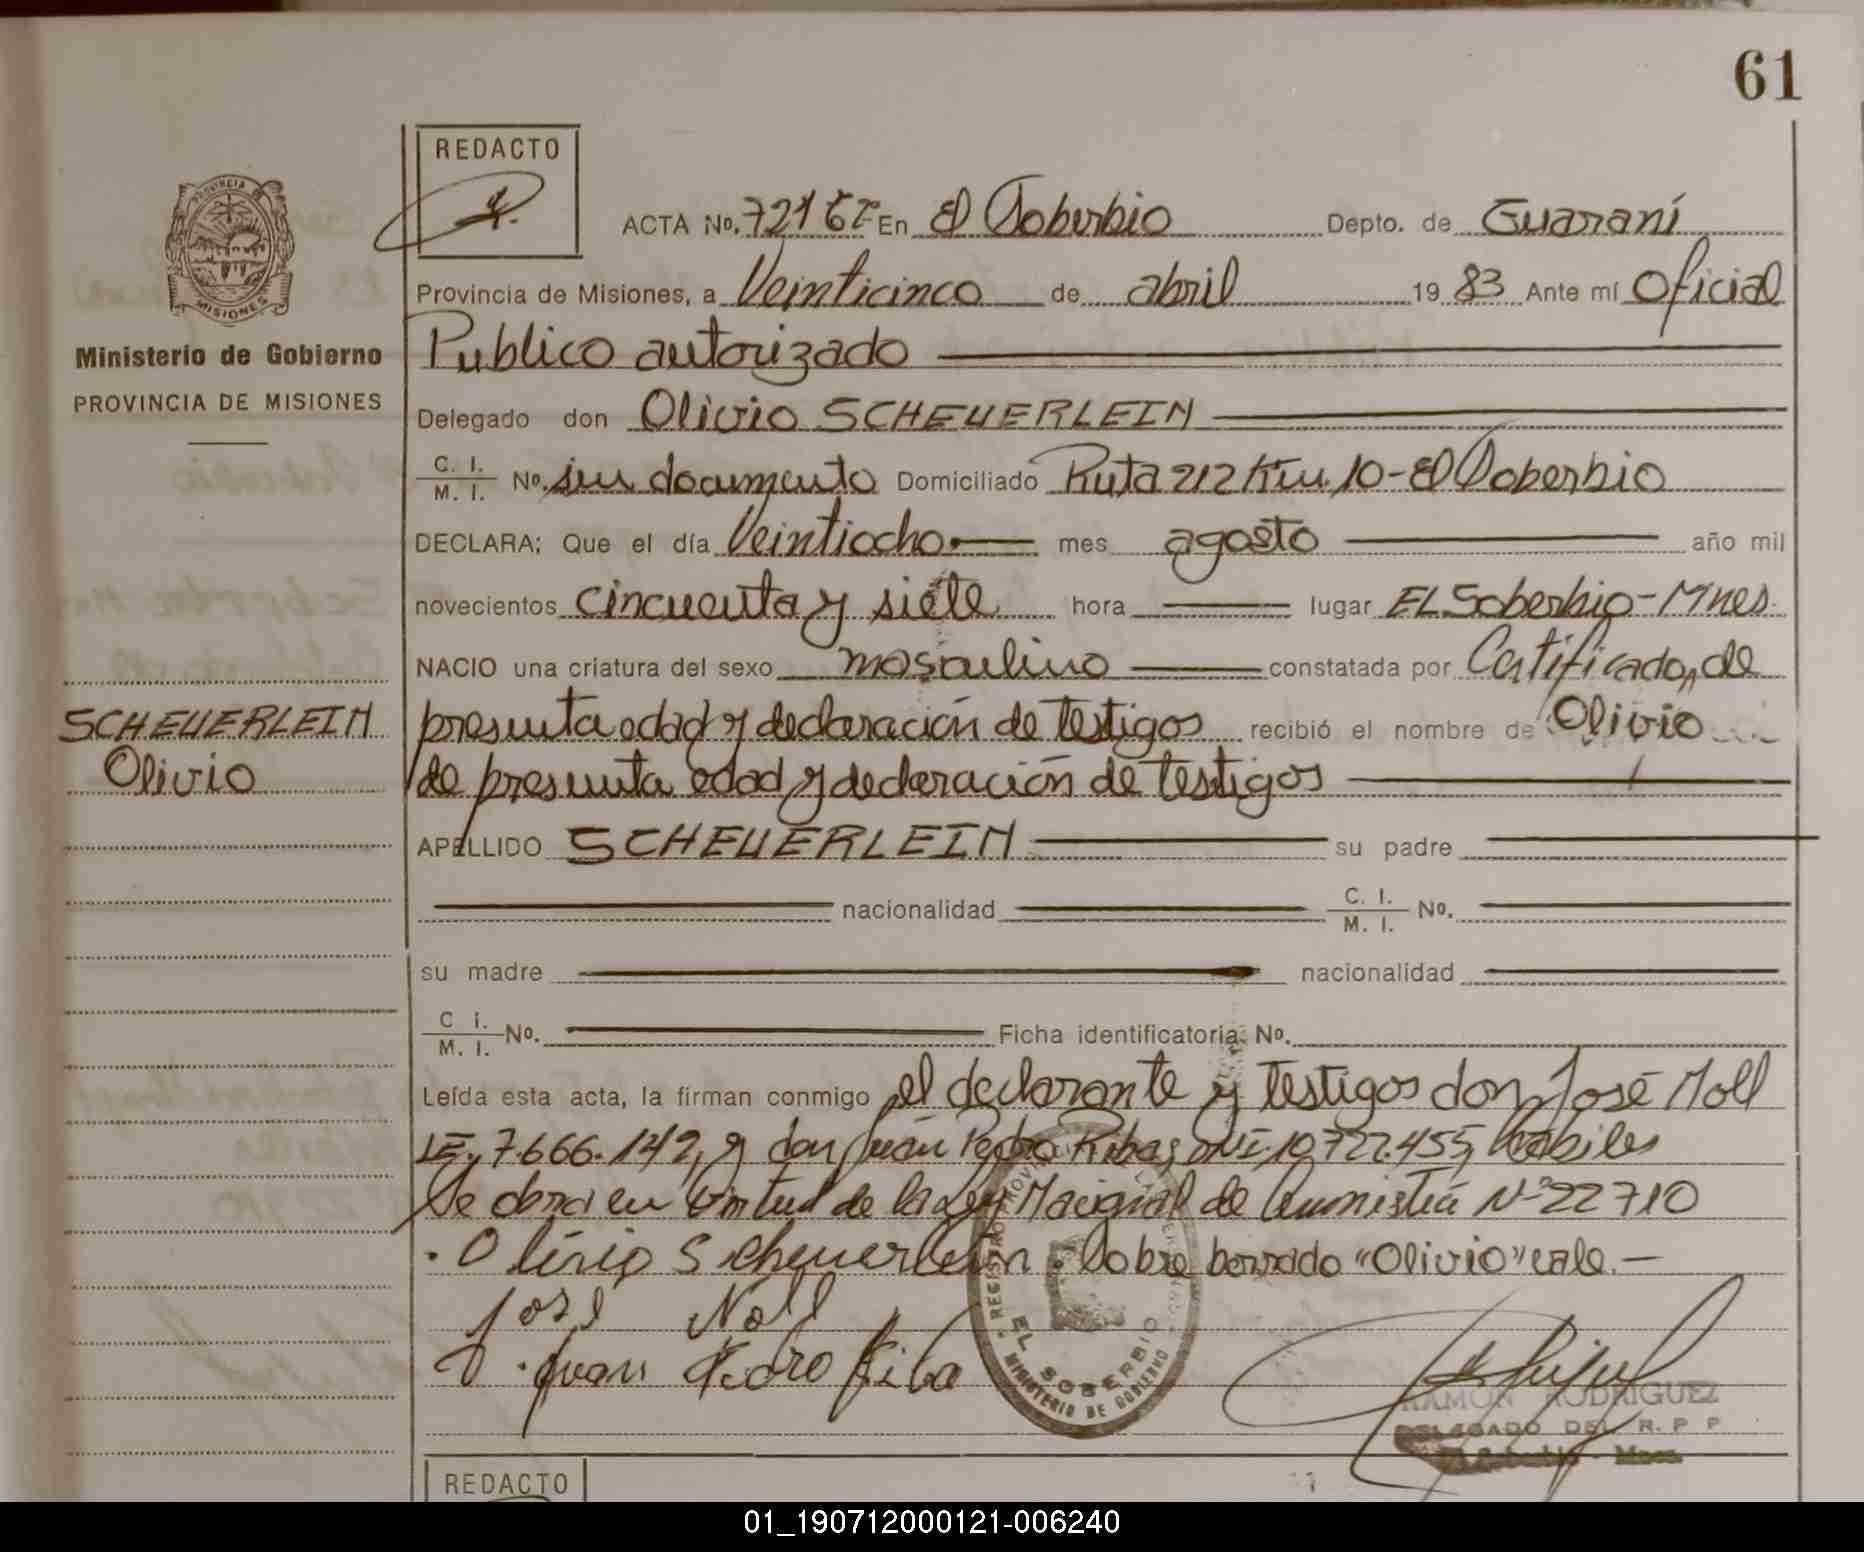 61
REDACTO
ACTA No. 721 En El Soberbio Depto. de Guaraní
Provincia de Misiones, a Veinticinco de abril 19 83 Ante mí Oficial
Publico autorizado
Ministerio de Gobierno
PROVINCIA DE MISIONES
Delegado don Olivio SCHEUERLEIN
C. I.
M. I. No. sin documento Domiciliado Ruta 212 Km. 10 - El Soberbio
DECLARA; Que el día Veintiocho mes agosto año mil
novecientos cincuenta y siete hora lugar EL Soberbio - Mnes.
NACIO una criatura del sexo masculino constatada por Certificado, de
SCHEUERLEIN
Olivio
presunta edad y declaración de testigos recibió el nombre de Olivio
de presunta edad y declaración de testigos
APELLIDO SCHEUERLEIN su padre
nacionalidad C. I.
M. I. No.
su madre nacionalidad
C I.
M. I. No. Ficha identificatoria: No.
Leída esta acta, la firman conmigo el declarante y testigos don José Noll
LE. 7.666.142, y don Juán Pedro Ribas, DNI. 10.727.455, habiles
Se obra en virtud de la Ley Nacional de Amnistía Nº 22710
. Olivio Scheuerlein Sobre borrado "Olivio" vale.-
José Noll
Juan Pedro Riba
REGISTRO PROVINCIAL DE LAS PERSONAS
EL SOBERBIO
MINISTERIO DE GOBIERNO
RAMON RODRIGUEZ
DELEGADO DEL R. P. P
El Soberbio - Mnes
REDACTO
01_190712000121-006240